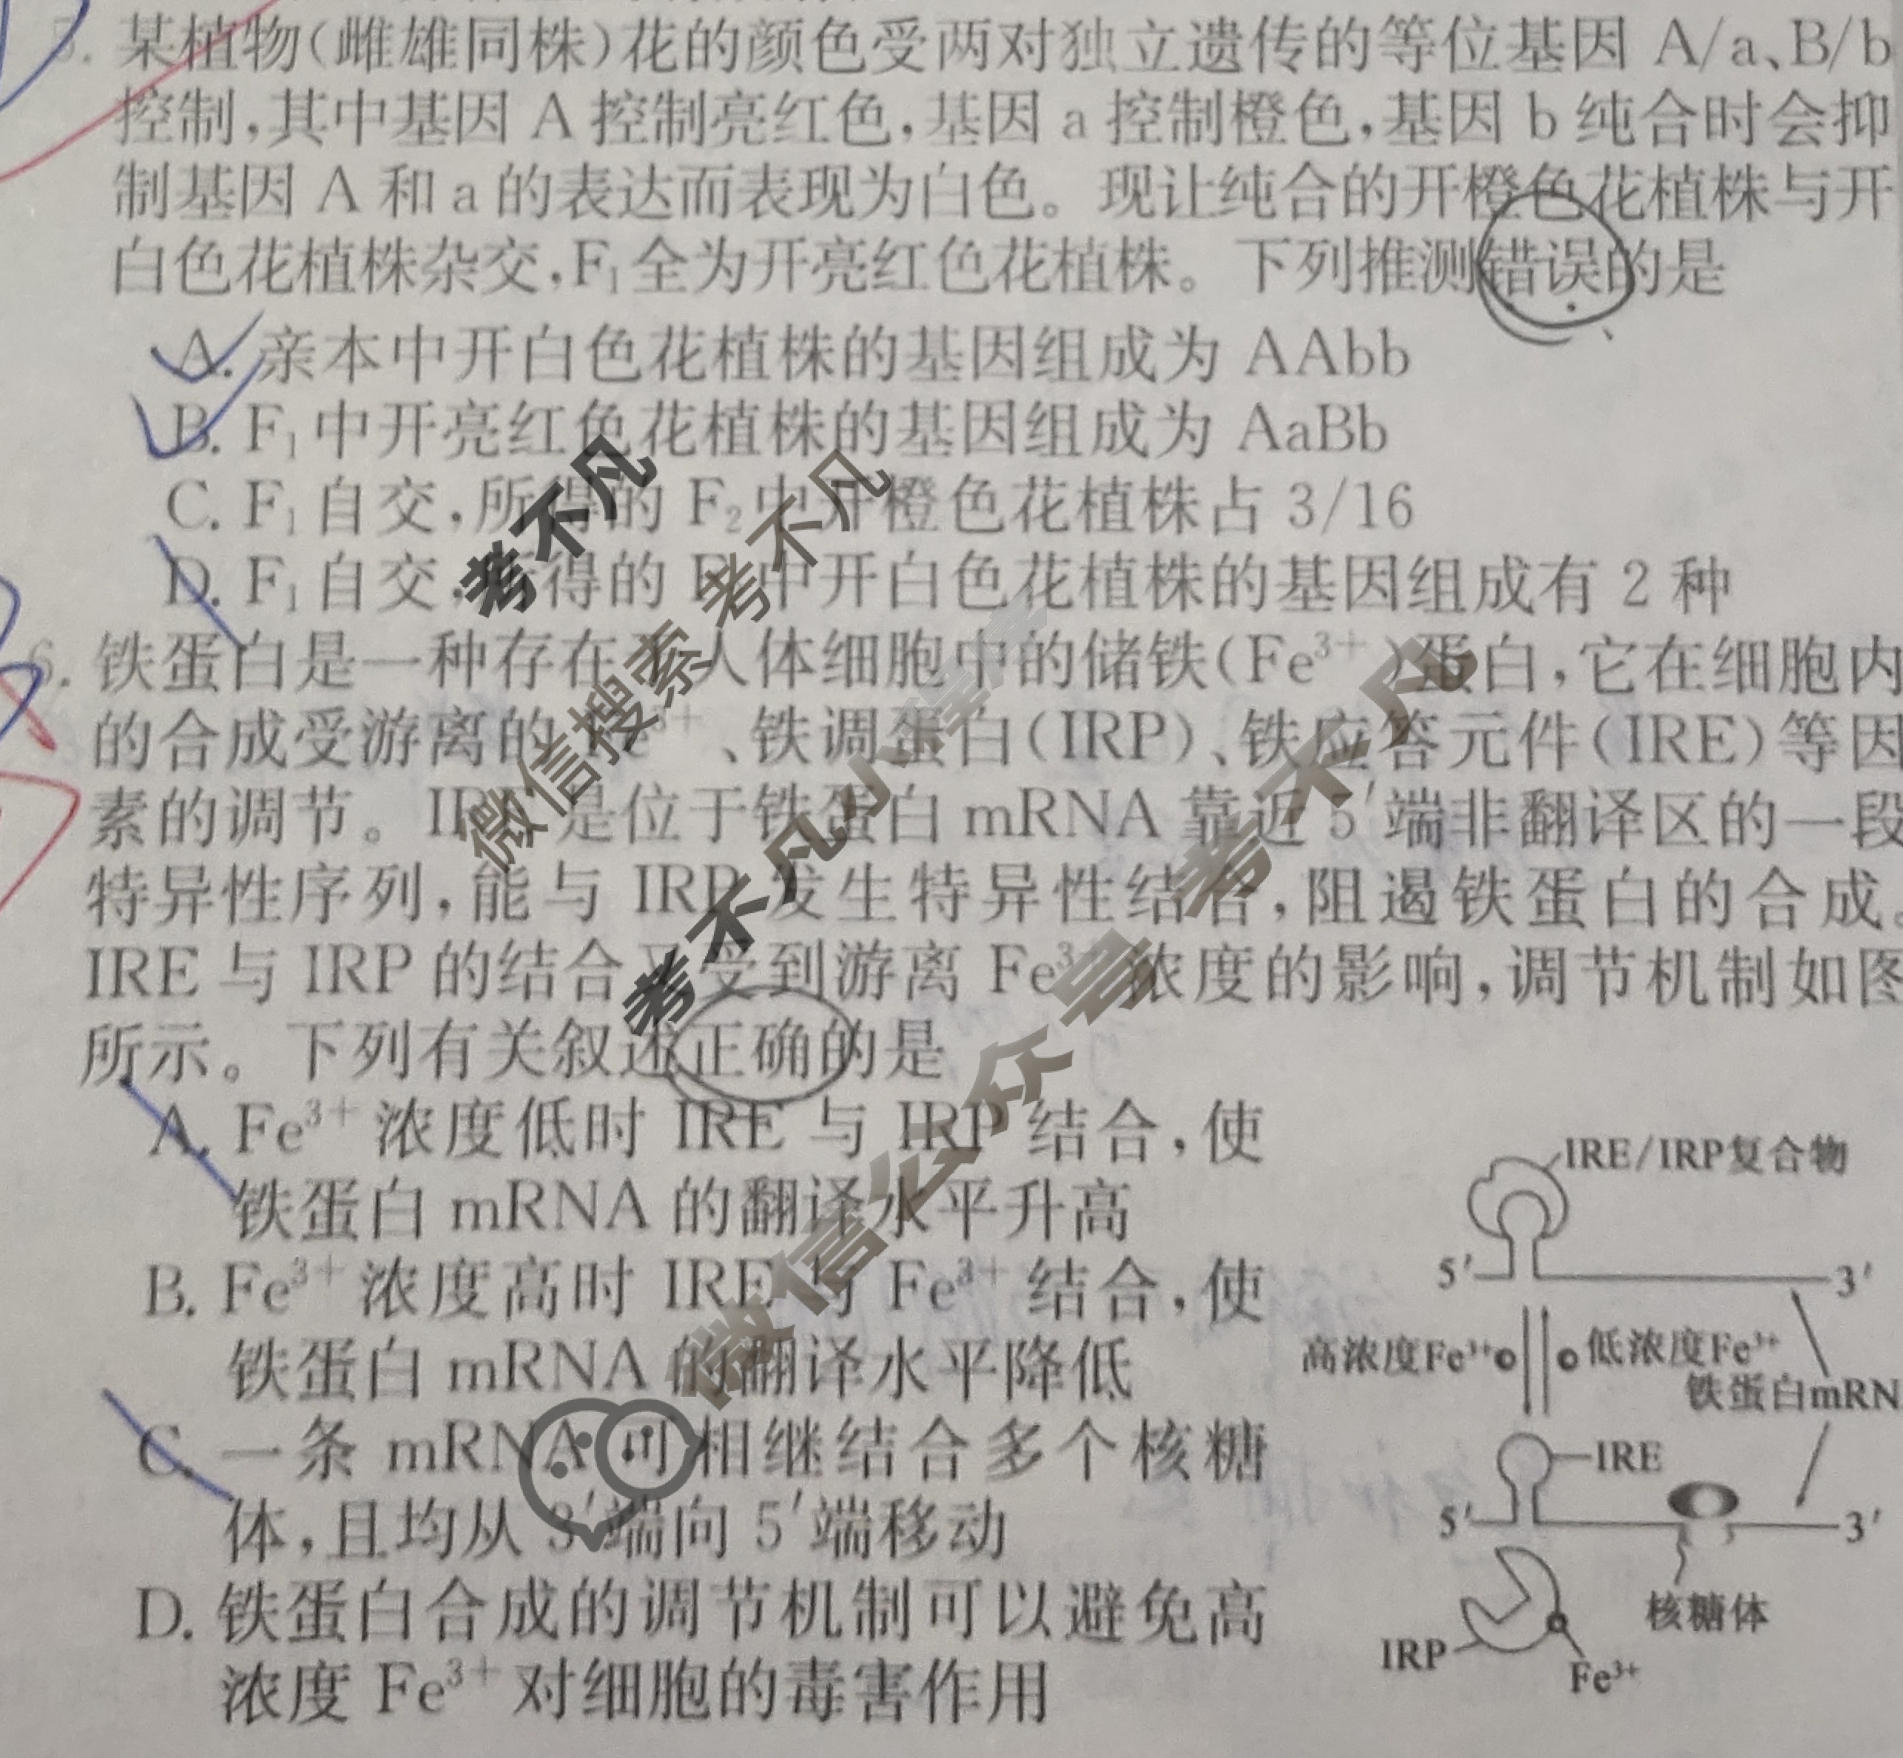 5. 某植物(雌雄同株)花的颜色受两对独立遗传的等位基因 A/a、B/b
控制,其中基因 A 控制亮红色,基因 a 控制橙色,基因 b 纯合时会抑
制基因 A 和 a 的表达而表现为白色。现让纯合的开橙色花植株与开
白色花植株杂交,F₁全为开亮红色花植株。下列推测错误的是
A. 亲本中开白色花植株的基因组成为 AAbb
B. F₁中开亮红色花植株的基因组成为 AaBb
C. F₁自交,所得的 F₂中开橙色花植株占 3/16
D. F₁自交,所得的 F 中开白色花植株的基因组成有 2 种
6. 铁蛋白是一种存在于人体细胞中的储铁(Fe³⁺)蛋白,它在细胞内
的合成受游离的 Fe³⁺、铁调蛋白(IRP)、铁应答元件(IRE)等因
素的调节。IRE 是位于铁蛋白 mRNA 靠近 5′端非翻译区的一段
特异性序列,能与 IRP 发生特异性结合,阻遏铁蛋白的合成。
IRE 与 IRP 的结合又受到游离 Fe³⁺浓度的影响,调节机制如图
所示。下列有关叙述正确的是
A. Fe³⁺浓度低时 IRE 与 IRP 结合,使
铁蛋白 mRNA 的翻译水平升高
B. Fe³⁺浓度高时 IRE 与 Fe³⁺结合,使
铁蛋白 mRNA 的翻译水平降低
C. 一条 mRNA 可相继结合多个核糖
体,且均从 3′端向 5′端移动
D. 铁蛋白合成的调节机制可以避免高
浓度 Fe³⁺对细胞的毒害作用
IRE/IRP复合物
5′ 3′
高浓度Fe³⁺ 低浓度Fe³⁺
铁蛋白mRN
IRE
5′ 3′
核糖体
IRP
Fe³⁺
考不凡
微信搜索 考不凡
考不凡小程序
微信公众号 考不凡